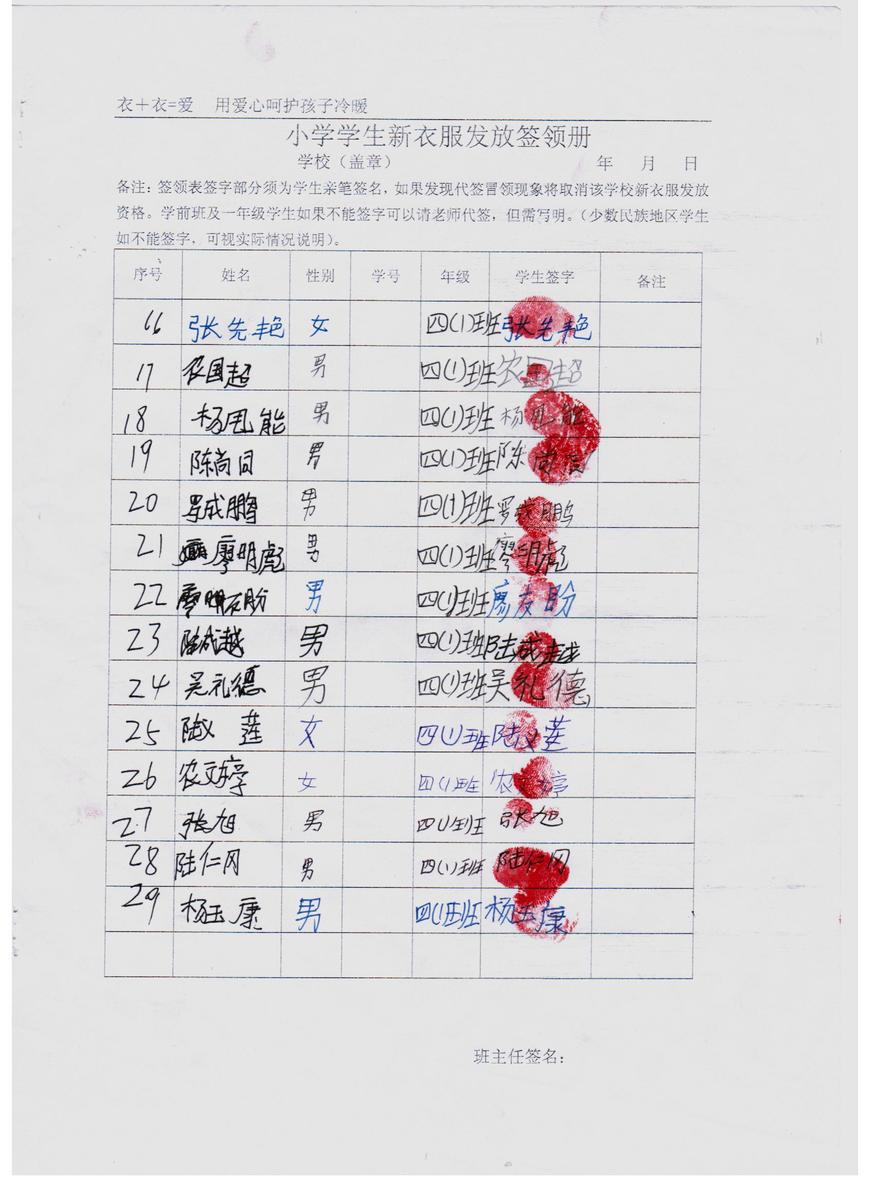 衣＋衣=爱 用爱心呵护孩子冷暖
小学学生新衣服发放签领册
学校（盖章） 年 月 日
备注：签领表签字部分须为学生亲笔签名，如果发现代签冒领现象将取消该学校新衣服发放
资格。学前班及一年级学生如果不能签字可以请老师代签，但需写明。（少数民族地区学生
如不能签字，可视实际情况说明）。
序号 姓名 性别 学号 年级 学生签字 备注
16 张先艳 女 四(1)班 张先艳
17 农国超 男 四(1)班 农国超
18 杨 能 男 四(1)班 杨 能
19 陈尚 男 四(1)班 陈尚
20 罗成鹏 男 四(1)班 罗成鹏
21 廖明彪 男 四(1)班 廖明彪
22 廖 盼 男 四(1)班 廖 盼
23 陆成越 男 四(1)班 陆成越
24 吴礼德 男 四(1)班 吴礼德
25 陆义莲 女 四(1)班 陆义莲
26 农文婷 女 四(1)班 农 婷
27 张旭 男 四(1)班 张旭
28 陆仁冈 男 四(1)班 陆仁冈
29 杨玉康 男 四(1)班 杨玉康
班主任签名：